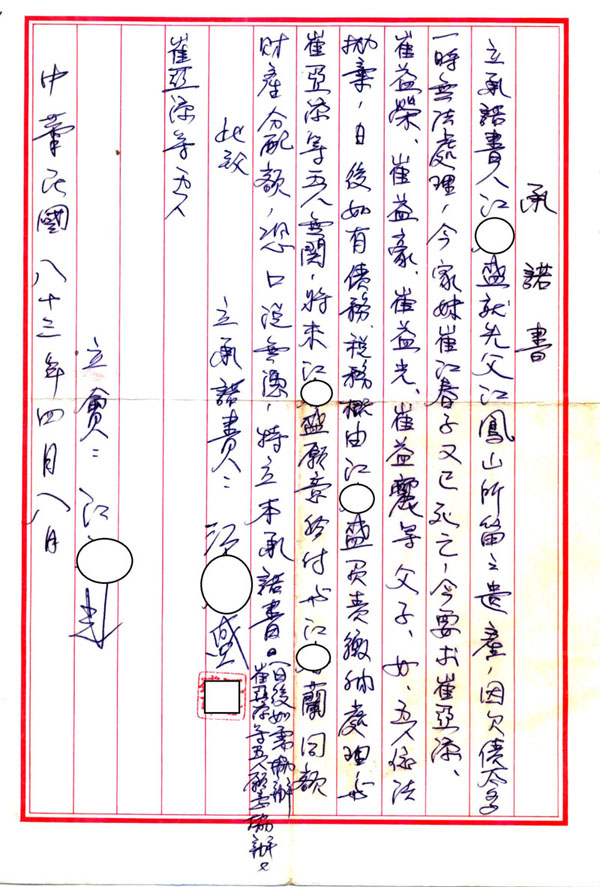 承諾書
立承諾書人江盛就先父江鳳山所留之遺產,因欠債太多
一時無法處理,今家妹崔江春子又已死亡,今要求崔亞源、
崔益榮、崔益豪、崔益光、崔益麗等父子、女、五人依法
拋棄,日後如有債務、稅務概由江盛負責繳納處理,與
崔亞源等五人無關,將來江盛願意給付與江蘭同額
財產分配額,恐口說無憑,特立本承諾書
日後如需協辦
崔亞源等五人願意協辦
此致
崔亞源等五人
立承諾書人:江盛
立會人:江
中華民國八十三年四月八日